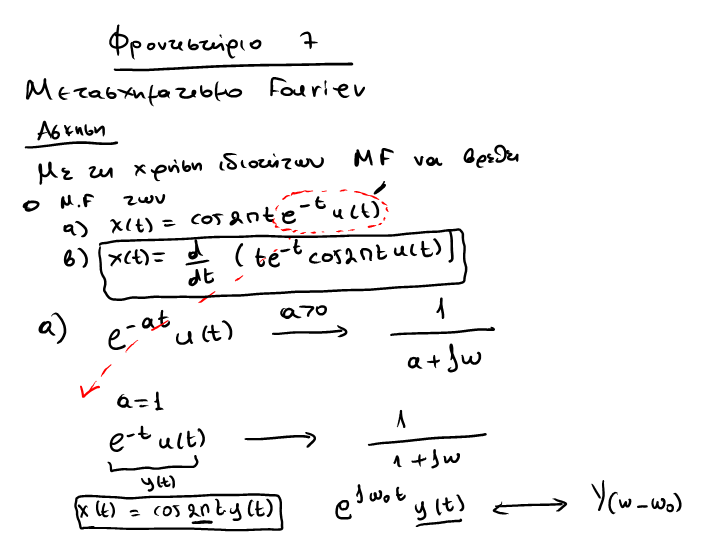 Φροντιστήριο 7
Μετασχηματισμο Fourier
Ασκηση
Με τη χρήση ιδιοτήτων MF να βρεθει
ο Μ.F των
α) x(t) = cos2πt e^{-t} u(t)
β) x(t) = d/dt (te^{-t} cos2πt u(t)]
α) e^{-at} u(t) a>0 ⟶ 1/(a+jω)
a=1
e^{-t} u(t) ⟶ 1/(1+jω)
y(t)
x(t) = cos2πt y(t) e^{jω₀t} y(t) ⟷ Y(ω-ω₀)